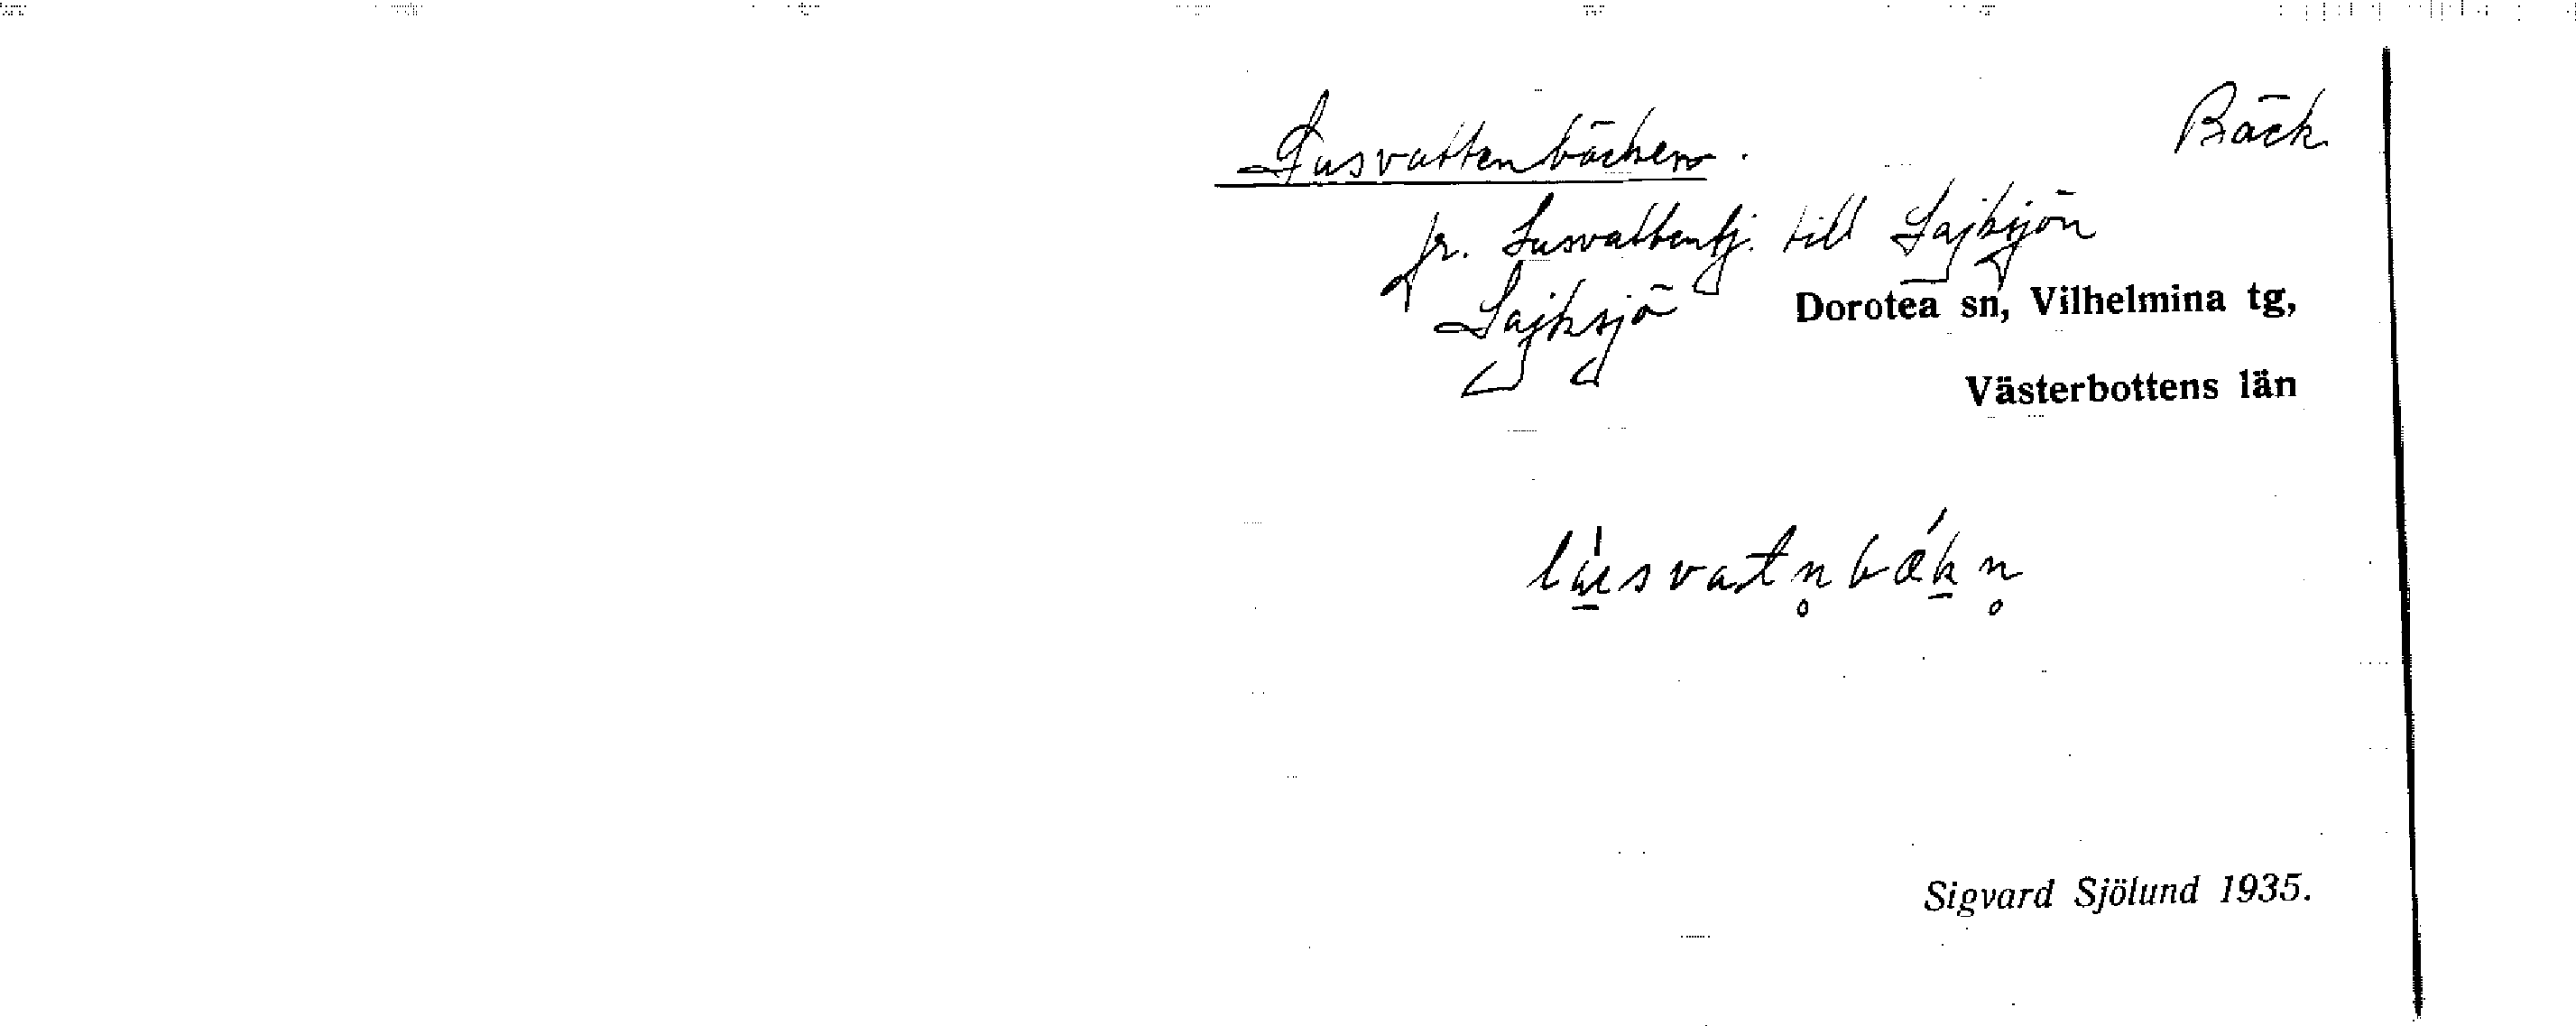 Lusvattenbäcken.
Bäck
fr. Lusvattentj. till Lajksjön
Lajksjö
Dorotea sn, Vilhelmina tg,
Västerbottens län
lùsvatn̥bǽkn̥
Sigvard Sjölund 1935.